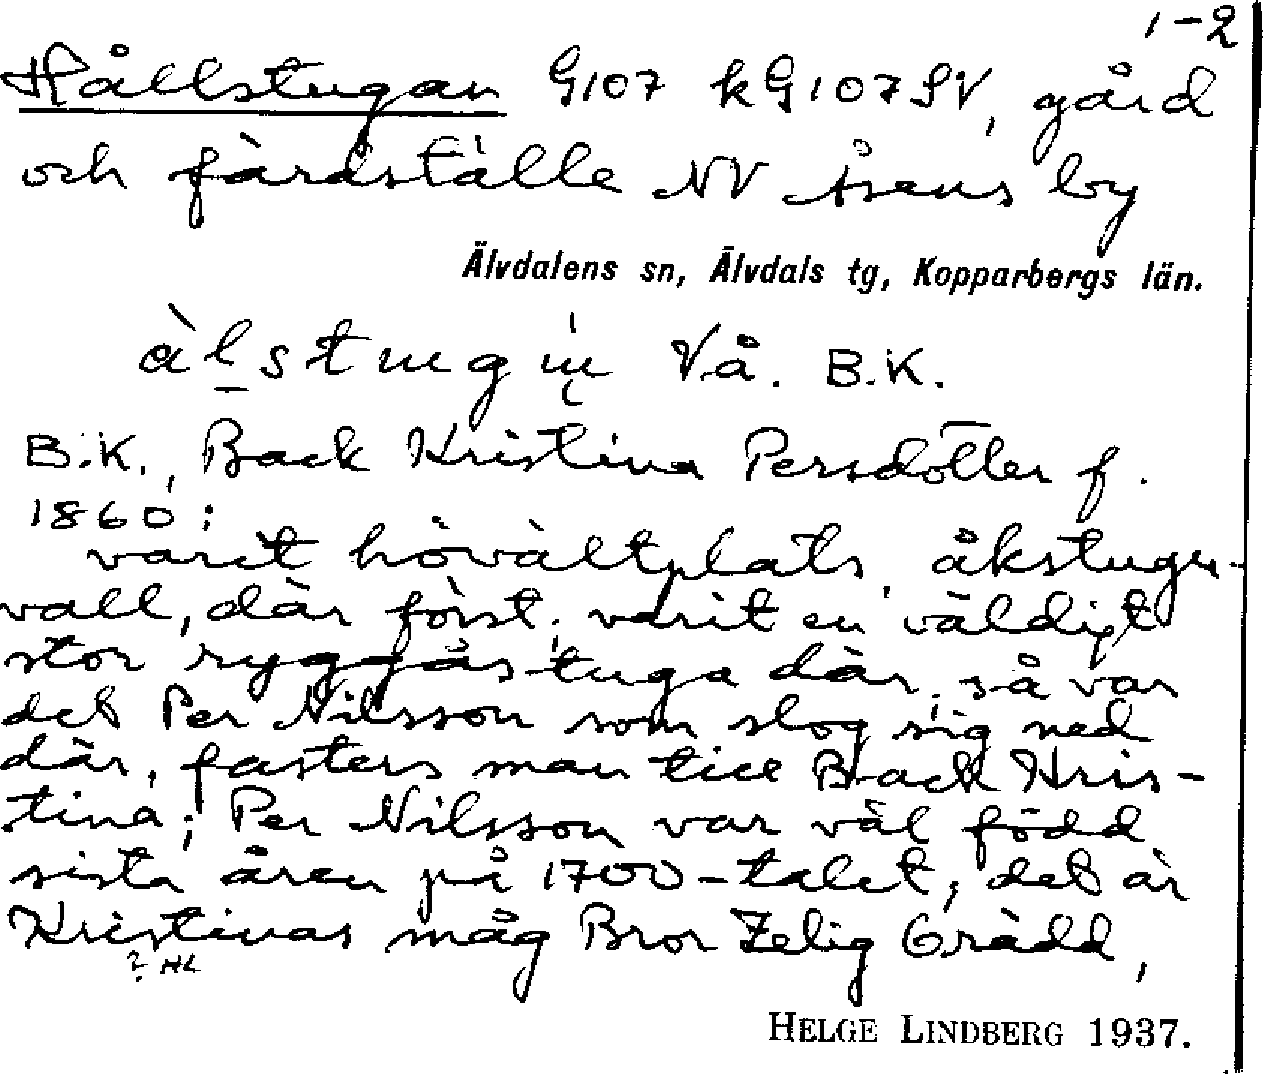 1-2
Hållstugan G107 kG107SV, gård
och färdställe NV Åsens by
Älvdalens sn, Älvdals tg, Kopparbergs län.
àlstugiṇ Vå. B.K.
B.K., Back Kristina Persdotter f.
1860:
varit hövältplats, åkstugu-
vall, där först; varit en väldigt
stor ryggåstuga där, så var
det Per Nilsson som slog sig ned
där, fasters man till Back Kris-
tina; Per Nilsson var väl född
sista åren på 1700-talet, det är
Kristinas måg Bror Zelig Grädd,
? HL
HELGE LINDBERG 1937.